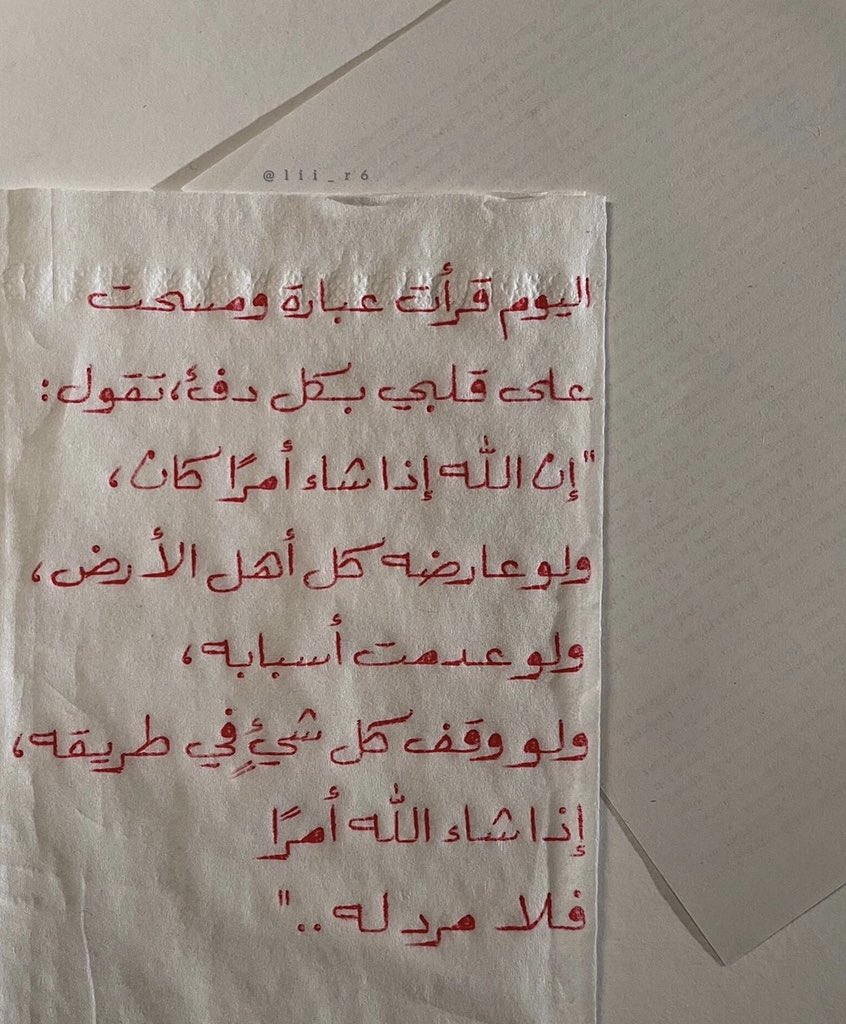 @lii_r6
اليوم قرأت عبارة ومسحت
على قلبي بكل دفئ، تقول:
"إن الله إذا شاء أمرًا كان،
ولو عارضه كل أهل الأرض،
ولو عدمت أسبابه،
ولو وقف كل شيءٍ في طريقه،
إذا شاء الله أمرًا
فلا مرد له .."